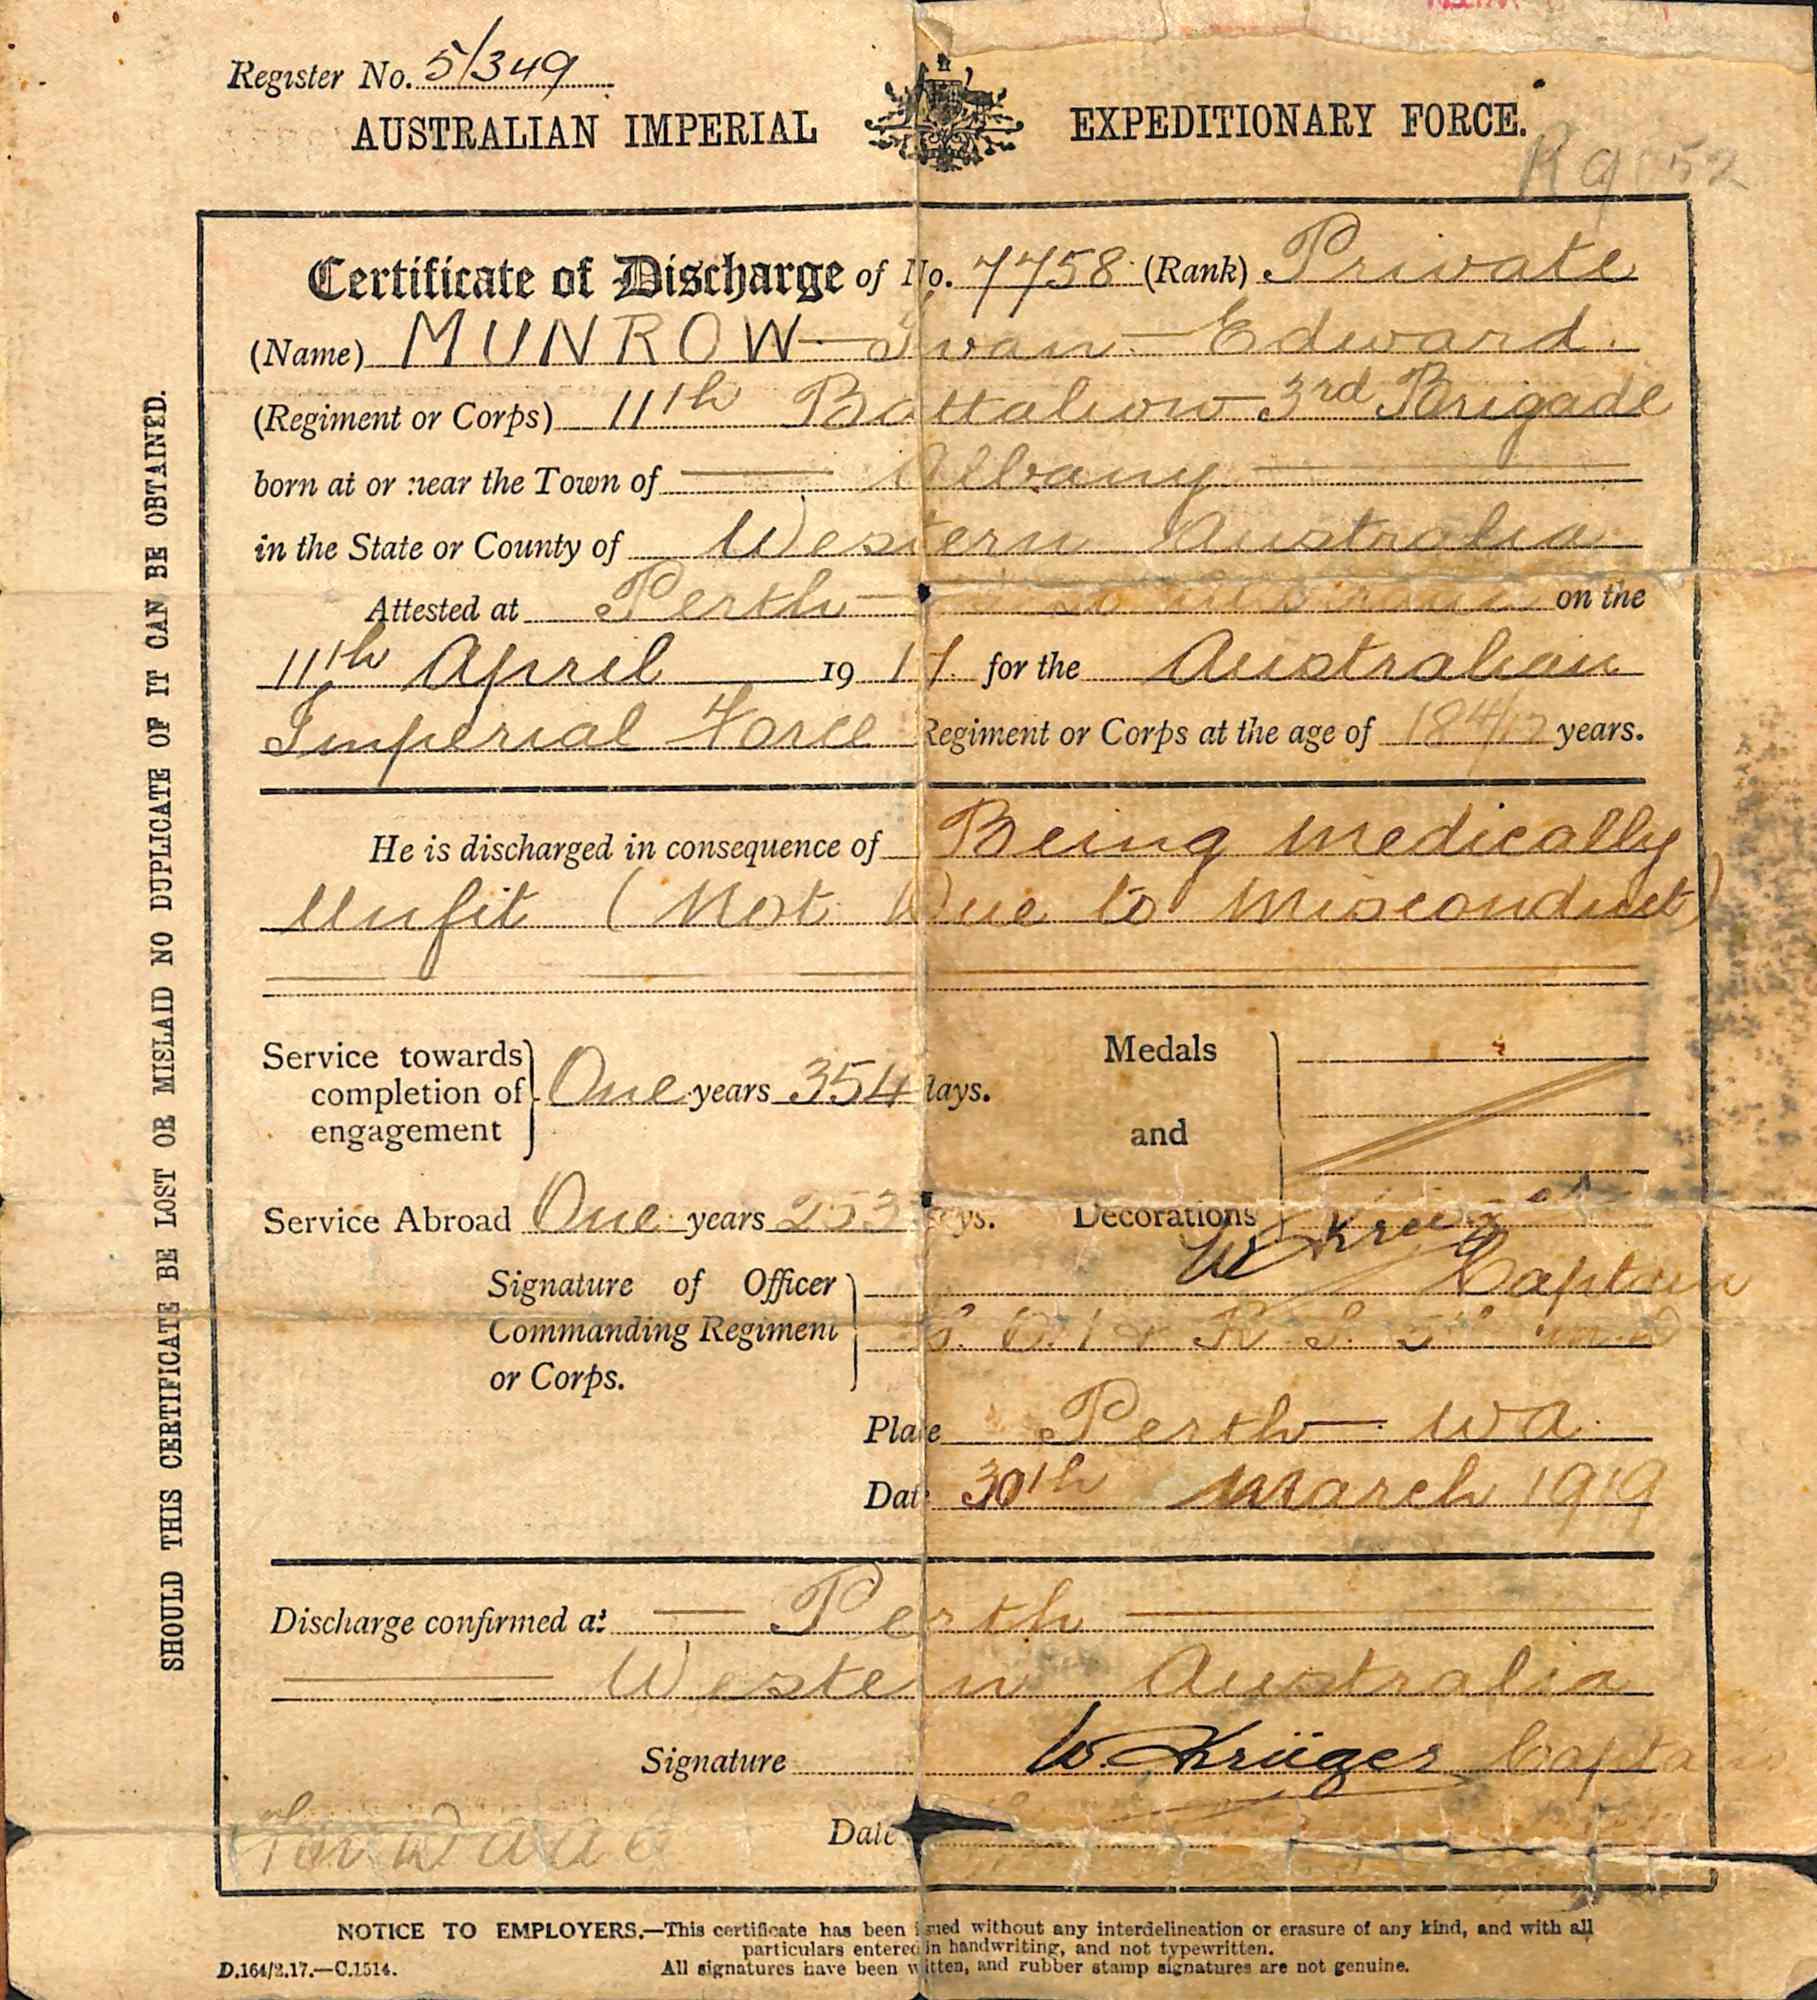 Register No. 5/349
AUSTRALIAN IMPERIAL EXPEDITIONARY FORCE.
Certificate of Discharge of No. 7758 (Rank) Private
(Name) MUNROW Ivan Edward.
(Regiment or Corps) 11th Battalion 3rd Brigade
born at or near the Town of Albany
in the State or County of Western Australia
Attested at Perth on the
11th April 1917. for the Australian
Imperial Force Regiment or Corps at the age of 18 4/12 years.
He is discharged in consequence of Being Medically
Unfit (Not Due to Misconduct)
Service towards completion of engagement One years 354 days.
Medals and Decorations
Service Abroad One years 253 days.
Signature of Officer Commanding Regiment or Corps.
W Krüger Captain
Place Perth WA.
Date 30th March 1919
Discharge confirmed at Perth
Western Australia
Signature W. Krüger Captain
Date
SHOULD THIS CERTIFICATE BE LOST OR MISLAID NO DUPLICATE OF IT CAN BE OBTAINED.
NOTICE TO EMPLOYERS.—This certificate has been issued without any interdelineation or erasure of any kind, and with all
particulars entered in handwriting, and not typewritten.
D.164/2.17.—C.1514. All signatures have been written, and rubber stamp signatures are not genuine.